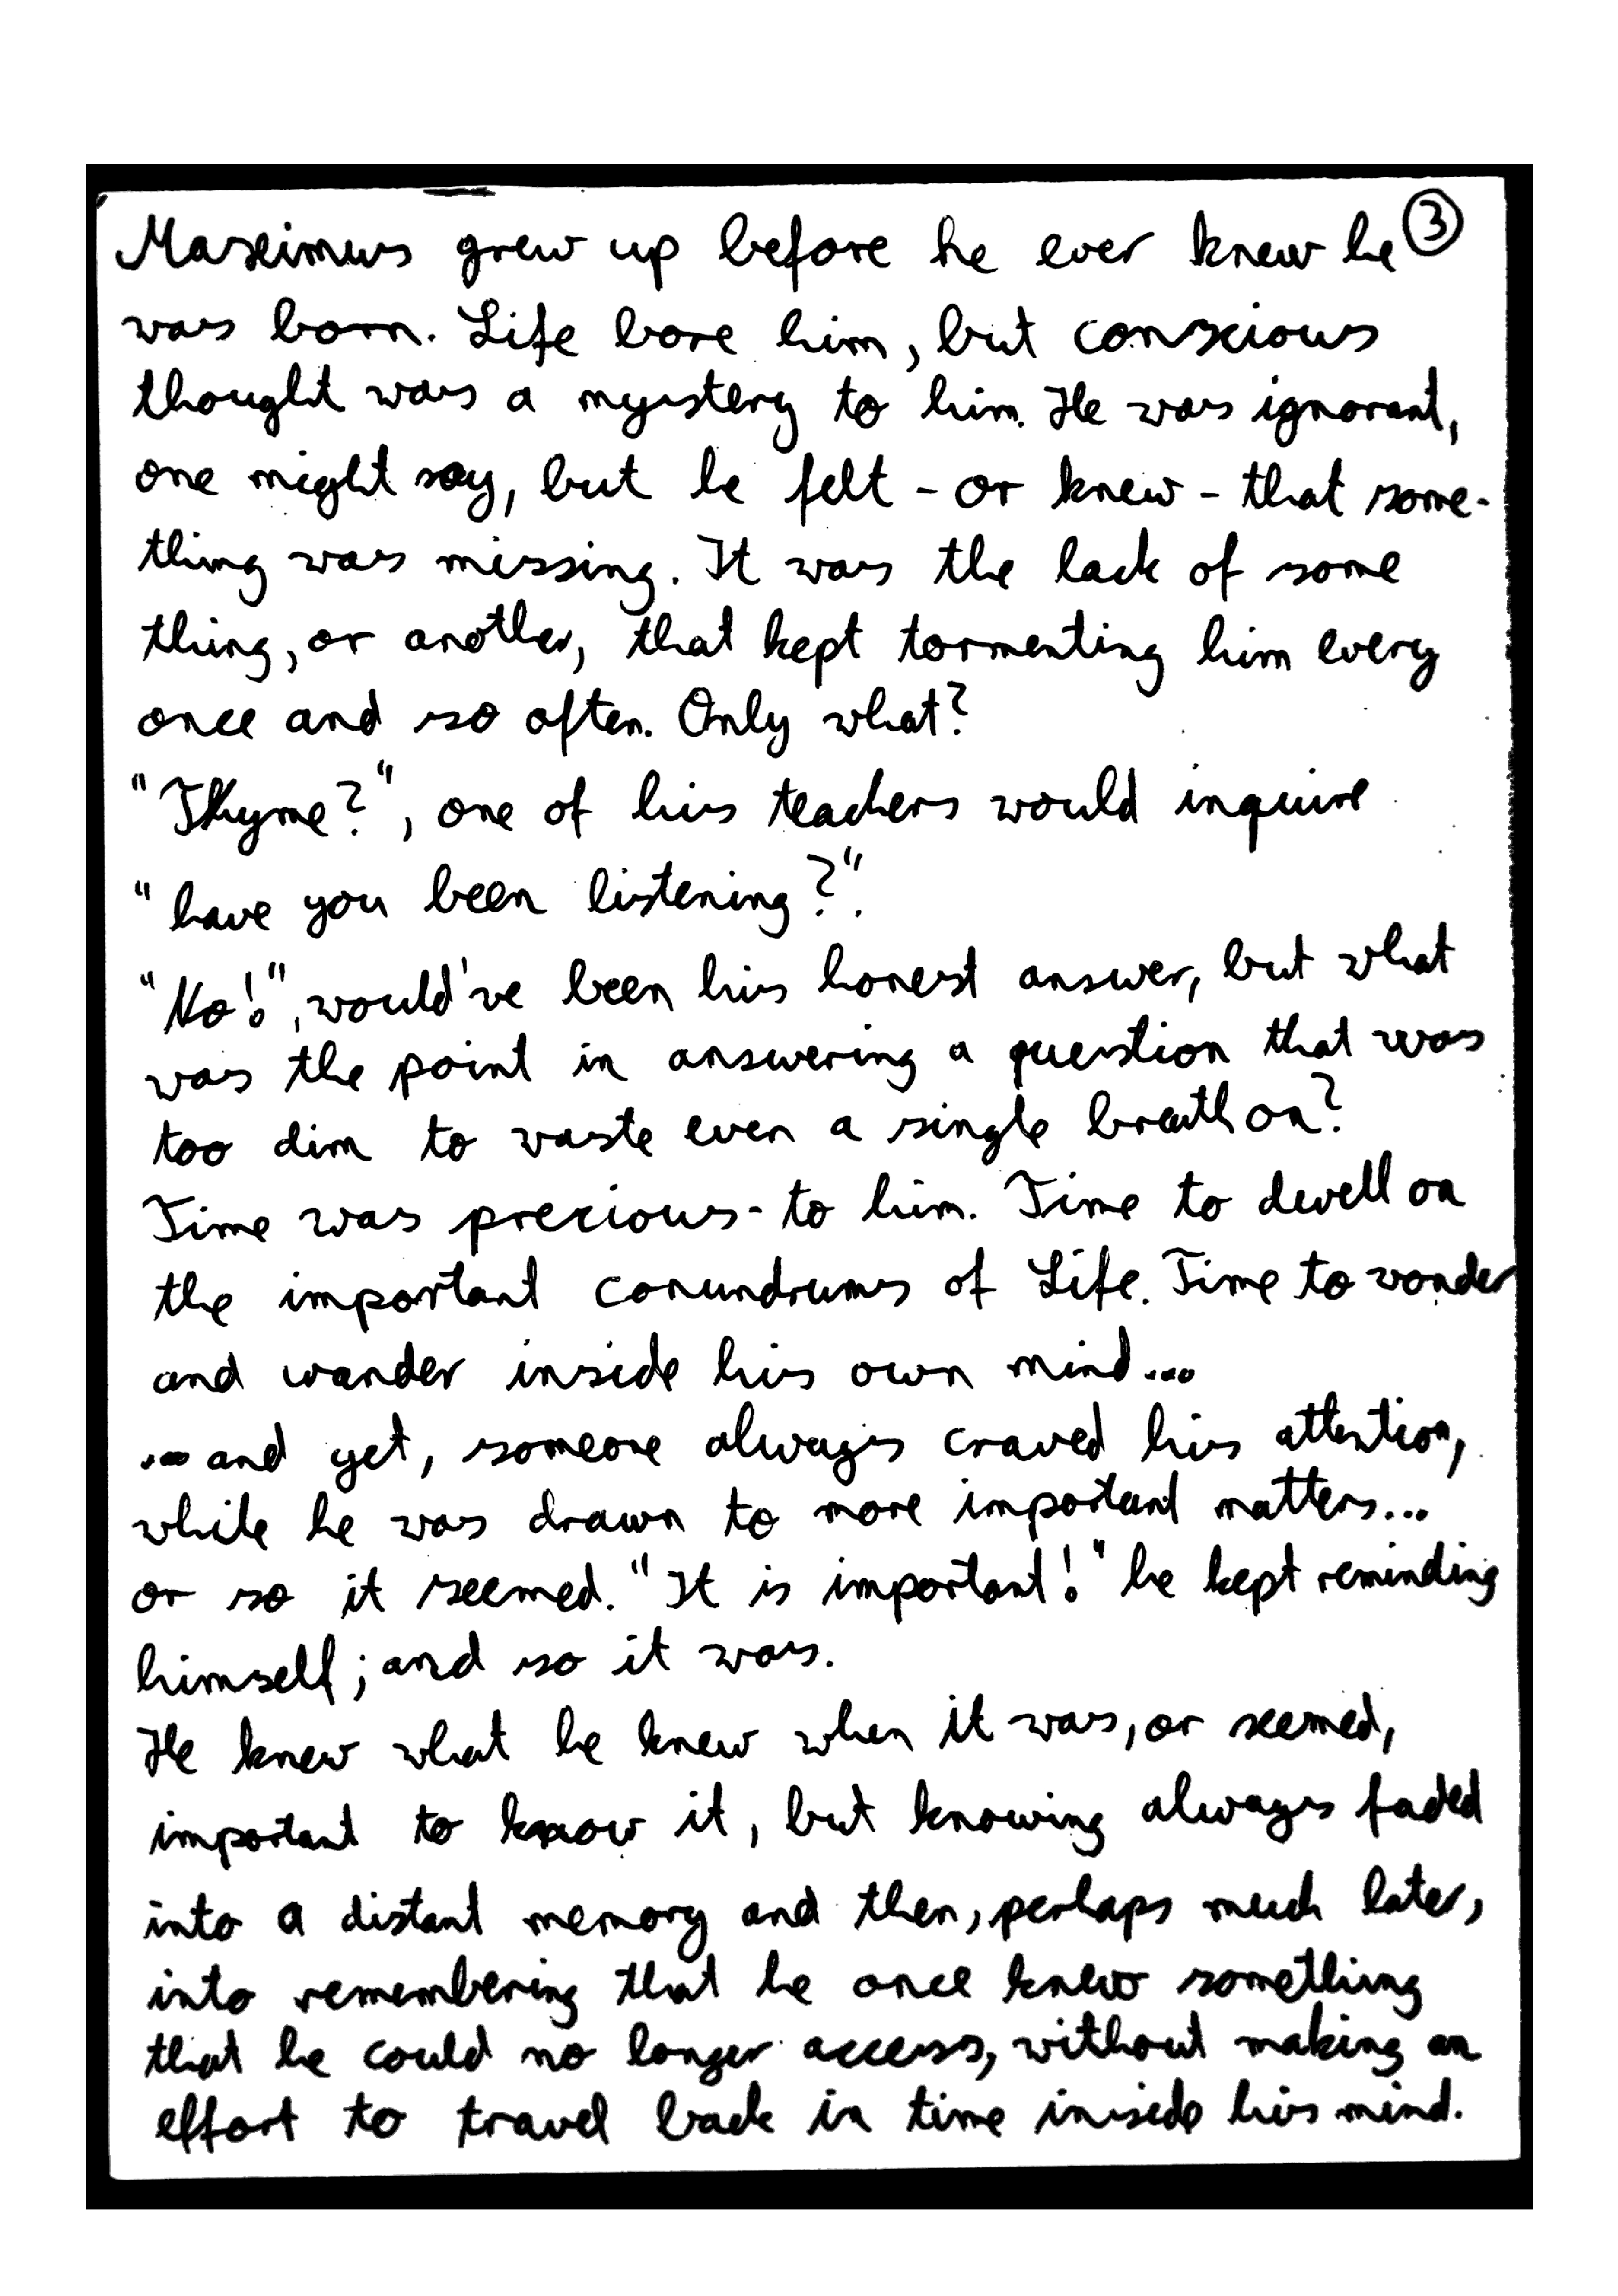 Maximus grew up before he ever knew he ③
was born. Life bore him, but conscious
thought was a mystery to him. He was ignorant,
one might say, but he felt - or knew - that some-
thing was missing. It was the lack of some
thing, or another, that kept tormenting him every
once and so often. Only what?
"Thyme?", one of his teachers would inquire
"have you been listening?".
"No!", would've been his honest answer, but what
was the point in answering a question that was
too dim to waste even a single breath on?
Time was precious - to him. Time to dwell on
the important conundrums of Life. Time to wonder
and wander inside his own mind...
...and yet, someone always craved his attention,
while he was drawn to more important matters...
or so it seemed. "It is important!" he kept reminding
himself; and so it was.
He knew what he knew when it was, or seemed,
important to know it, but knowing always faded
into a distant memory and then, perhaps much later,
into remembering that he once knew something
that he could no longer access, without making an
effort to travel back in time inside his mind.